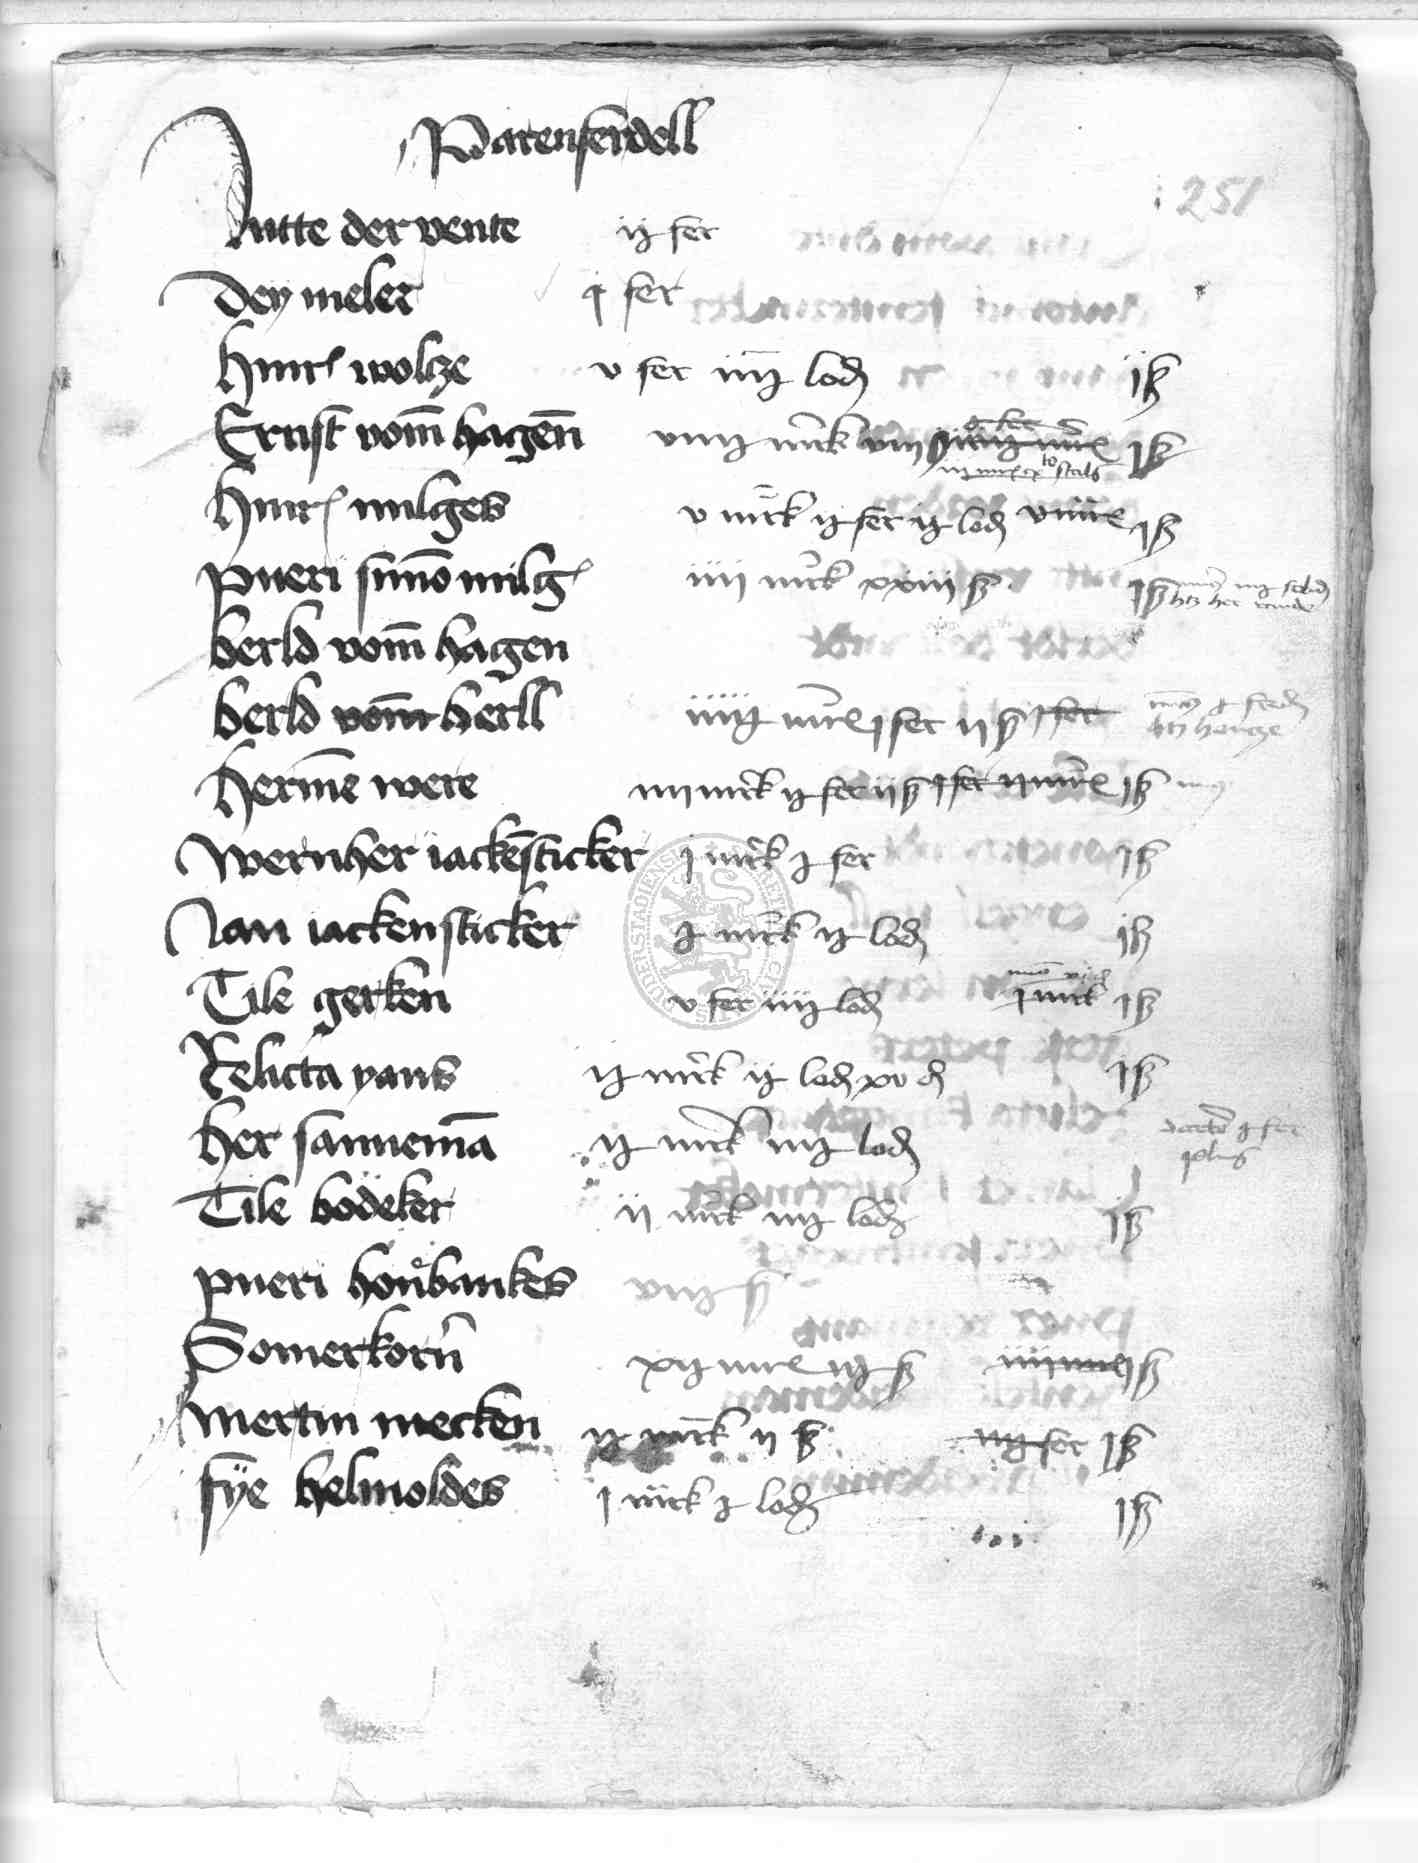 Patenferdell
251
Jutte der vente ij fer
Dey meler j fer
hinr wolze v fer iiij lod i ß
Ernst vom hagen viiij mrck viiij i ß
hinr milges v mrck ij fer ij lod i ß
pueri simo milg iiii mrck xxiii ß i ß
berld vom hagen
berld vom herll iiiij mre i fer ii ß i fer
Herme were iiii mrck ij fer ii ß i fer ii mre i ß
Wernher iackesticker i mrck j fer i ß
Jan iackensticker j mrck ij lod i ß
Tile gerken v fer iiij lod i mrck i ß
Relicta yans ij mrck ij lod xv d i ß
her sannema ij mrck iiij lod
Tile bodeker ii mrck iiij lod i ß
pueri honbankes viij ß
Somerkorn xij mre iij ß i ß
Mertin mecken ij mrck ii ß iiij fer i ß
fye helmoldes i mrck j lod i ß